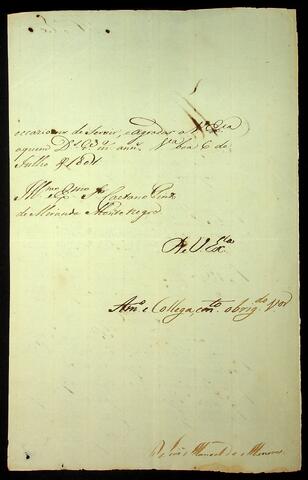 occazioens de Servir, e agradar a V. Exa
aquem Ds. Gde. m. ann. Va. boa 6 de
Julho de 1801
Illmo. e Exmo. Sr. Caetano Pinto
de Miranda Montenegro
De V. Exa.
Amo. e Collega, mto. obrigdo. Vor.
D. José Manoel de Menezes